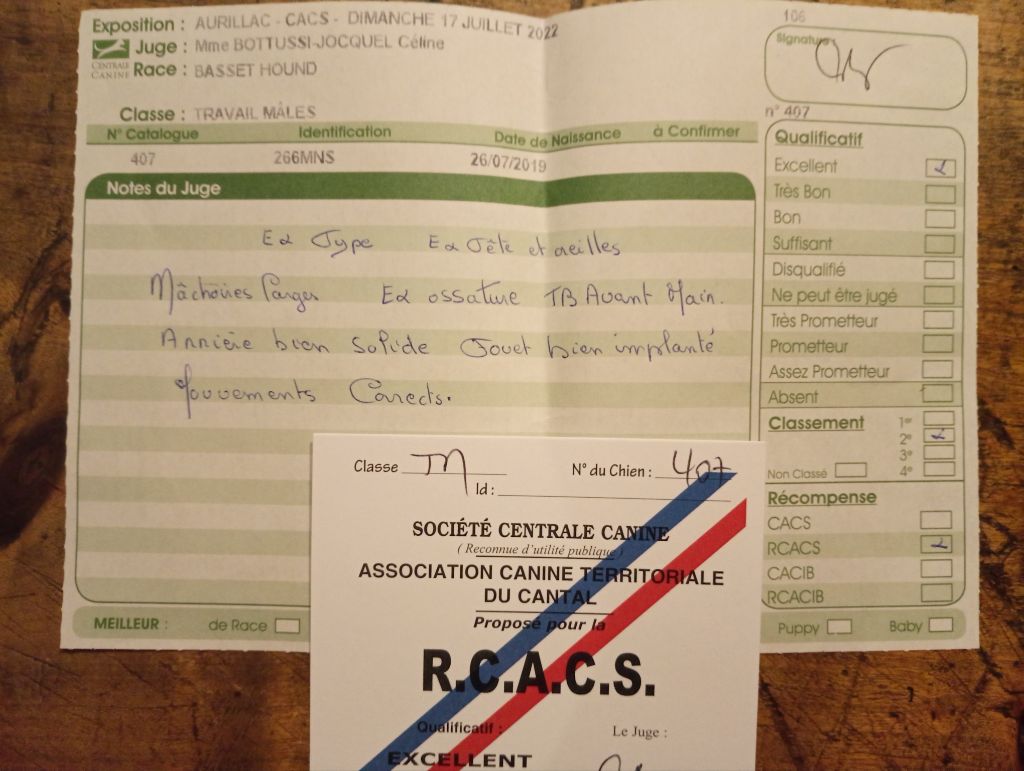 Exposition : AURILLAC - CACS - DIMANCHE 17 JUILLET 2022
CENTRALE CANINE
Juge : Mme BOTTUSSI-JOCQUEL Céline
Race : BASSET HOUND
Classe : TRAVAIL MÂLES
N° Catalogue Identification Date de Naissance à Confirmer
407 266MNS 26/07/2019
Notes du Juge
Ex Type Ex Tête et oreilles
Mâchoires Larges Ex ossature TB Avant Main.
Arrière bien Solide Fouet bien implanté
Mouvements Corrects.
MEILLEUR : de Race
106
Signature
n° 407
Qualificatif
Excellent x
Très Bon
Bon
Suffisant
Disqualifié
Ne peut être jugé
Très Prometteur
Prometteur
Assez Prometteur
Absent
Classement 1er
2e x
3e
Non Classé 4e
Récompense
CACS
RCACS x
CACIB
RCACIB
Puppy Baby
Classe TM N° du Chien : 407
Id :
SOCIÉTÉ CENTRALE CANINE
( Reconnue d'utilité publique )
ASSOCIATION CANINE TERRITORIALE
DU CANTAL
Proposé pour la
R.C.A.C.S.
Qualificatif : Le Juge :
EXCELLENT